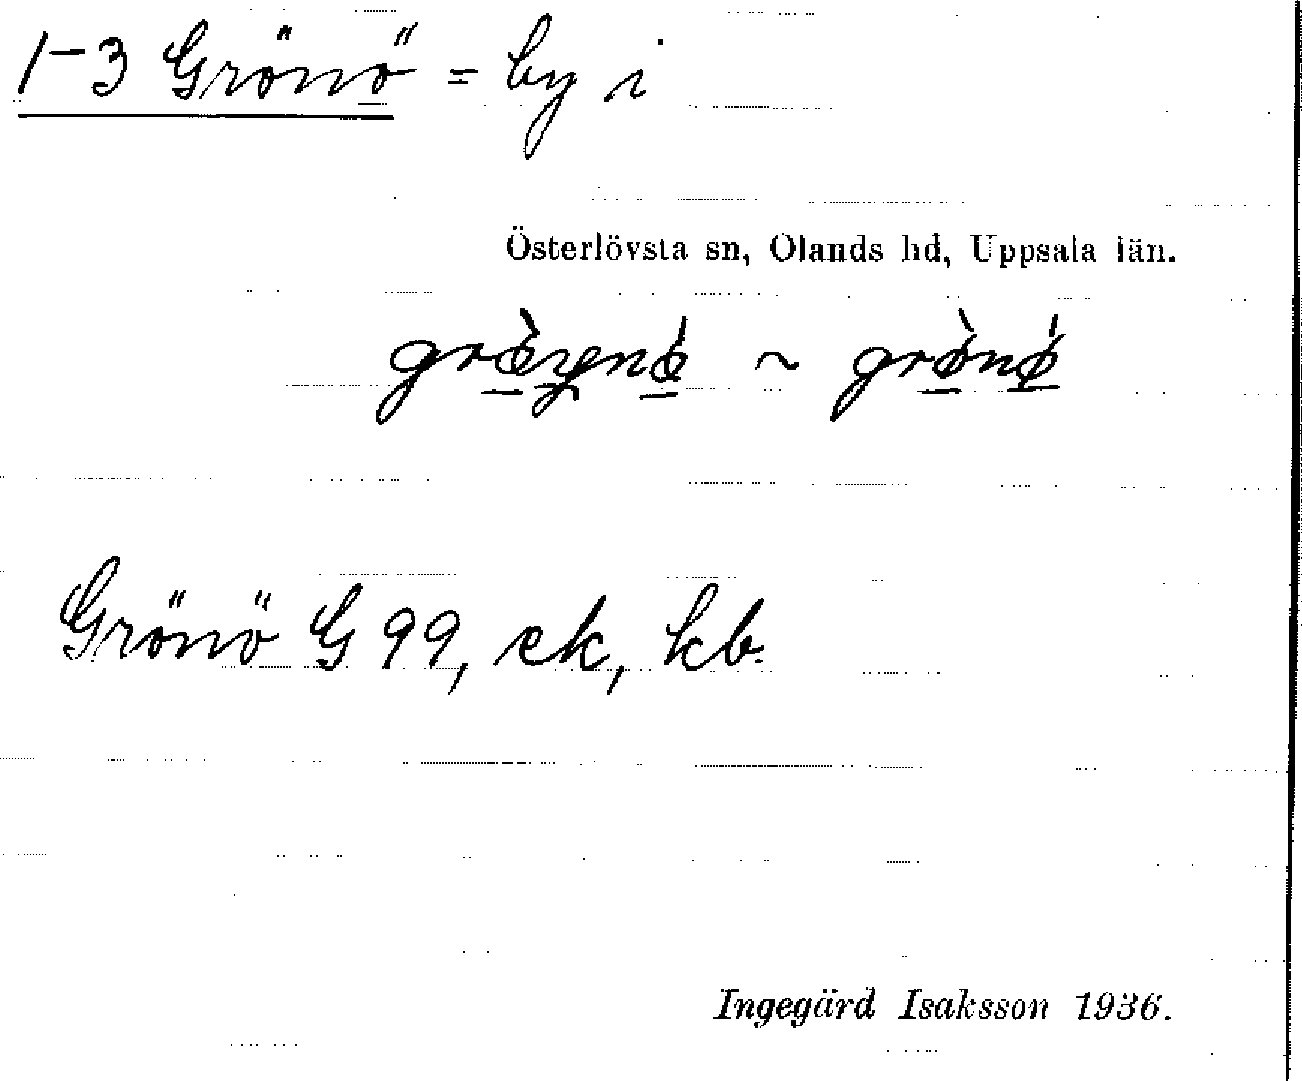 1-3 Grönö = by i
Österlövsta sn, Olands hd, Uppsala län.
~ grø̀nǿ
Grönö G 99, ek, kb.
Ingegärd Isaksson 1936.